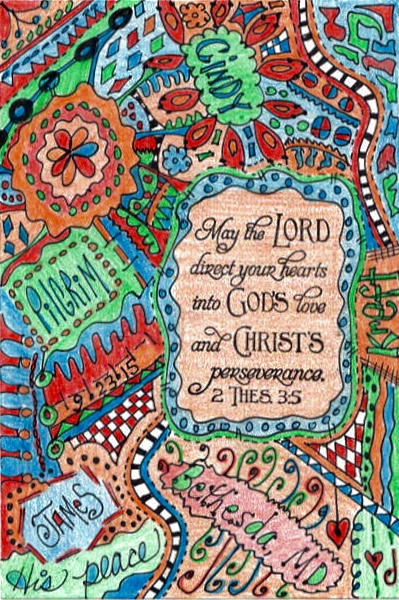 CINDY
May the LORD
direct your hearts
into GOD'S love
and CHRIST'S
perseverance.
2 THES. 3:5
PilGRIM
Kreft
JAMES
Bethesda, MD
His peace